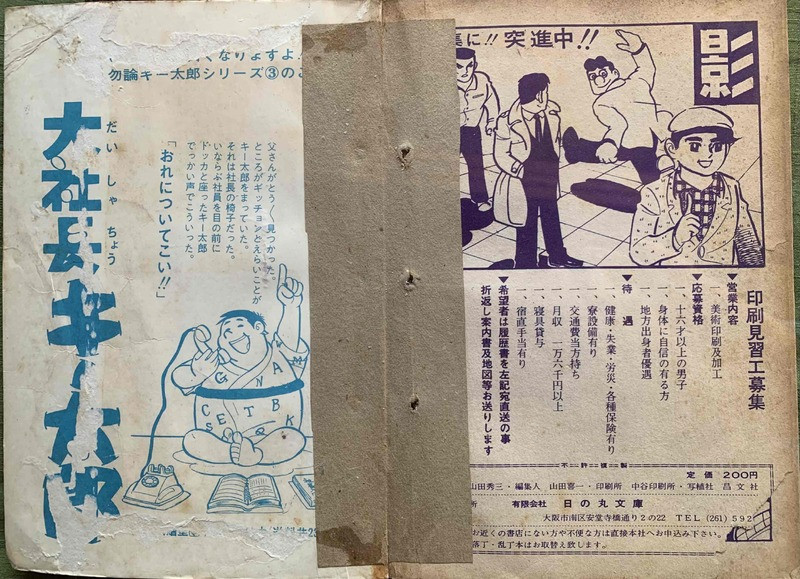 影
集に!! 突進中!!
印刷見習工募集
▼営業内容
一、美術印刷及加工
▼応募資格
一、十六才以上の男子
一、身体に自信の有る方
一、地方出身者優遇
▼待遇
一、健康・失業・労災・各種保険有り
一、寮設備有り
一、交通費当方持ち
一、月収 一万六千円以上
一、寝具貸与
一、宿直手当有り
▼希望者は履歴書を左記宛直送の事
折返し案内書及地図等お送りします
不許複製
定価 200円
山田秀三・編集人 山田喜一・印刷所 中谷印刷所・写植社 昌文社
所 有限会社 日の丸文庫
大阪市南区安堂寺橋通り2の22 TEL (261) 592
お近くの書店にない方や不便な方は直接本社へお申込み下さい。
落丁・乱丁本はお取替え致します。
くなりますよ
勿論キー太郎シリーズ③のこ
大社長キー太郎
だいしゃちょう
父さんがとうとう見つかった。
ところがギッチョンとえらいことが
キー太郎をまっていた。
それは社長の椅子だった。
いならぶ社員を目の前に
ドッカと座ったキー太郎
でっかい声でこういった。
「おれについてこい!!」
G N A
C S E T B K